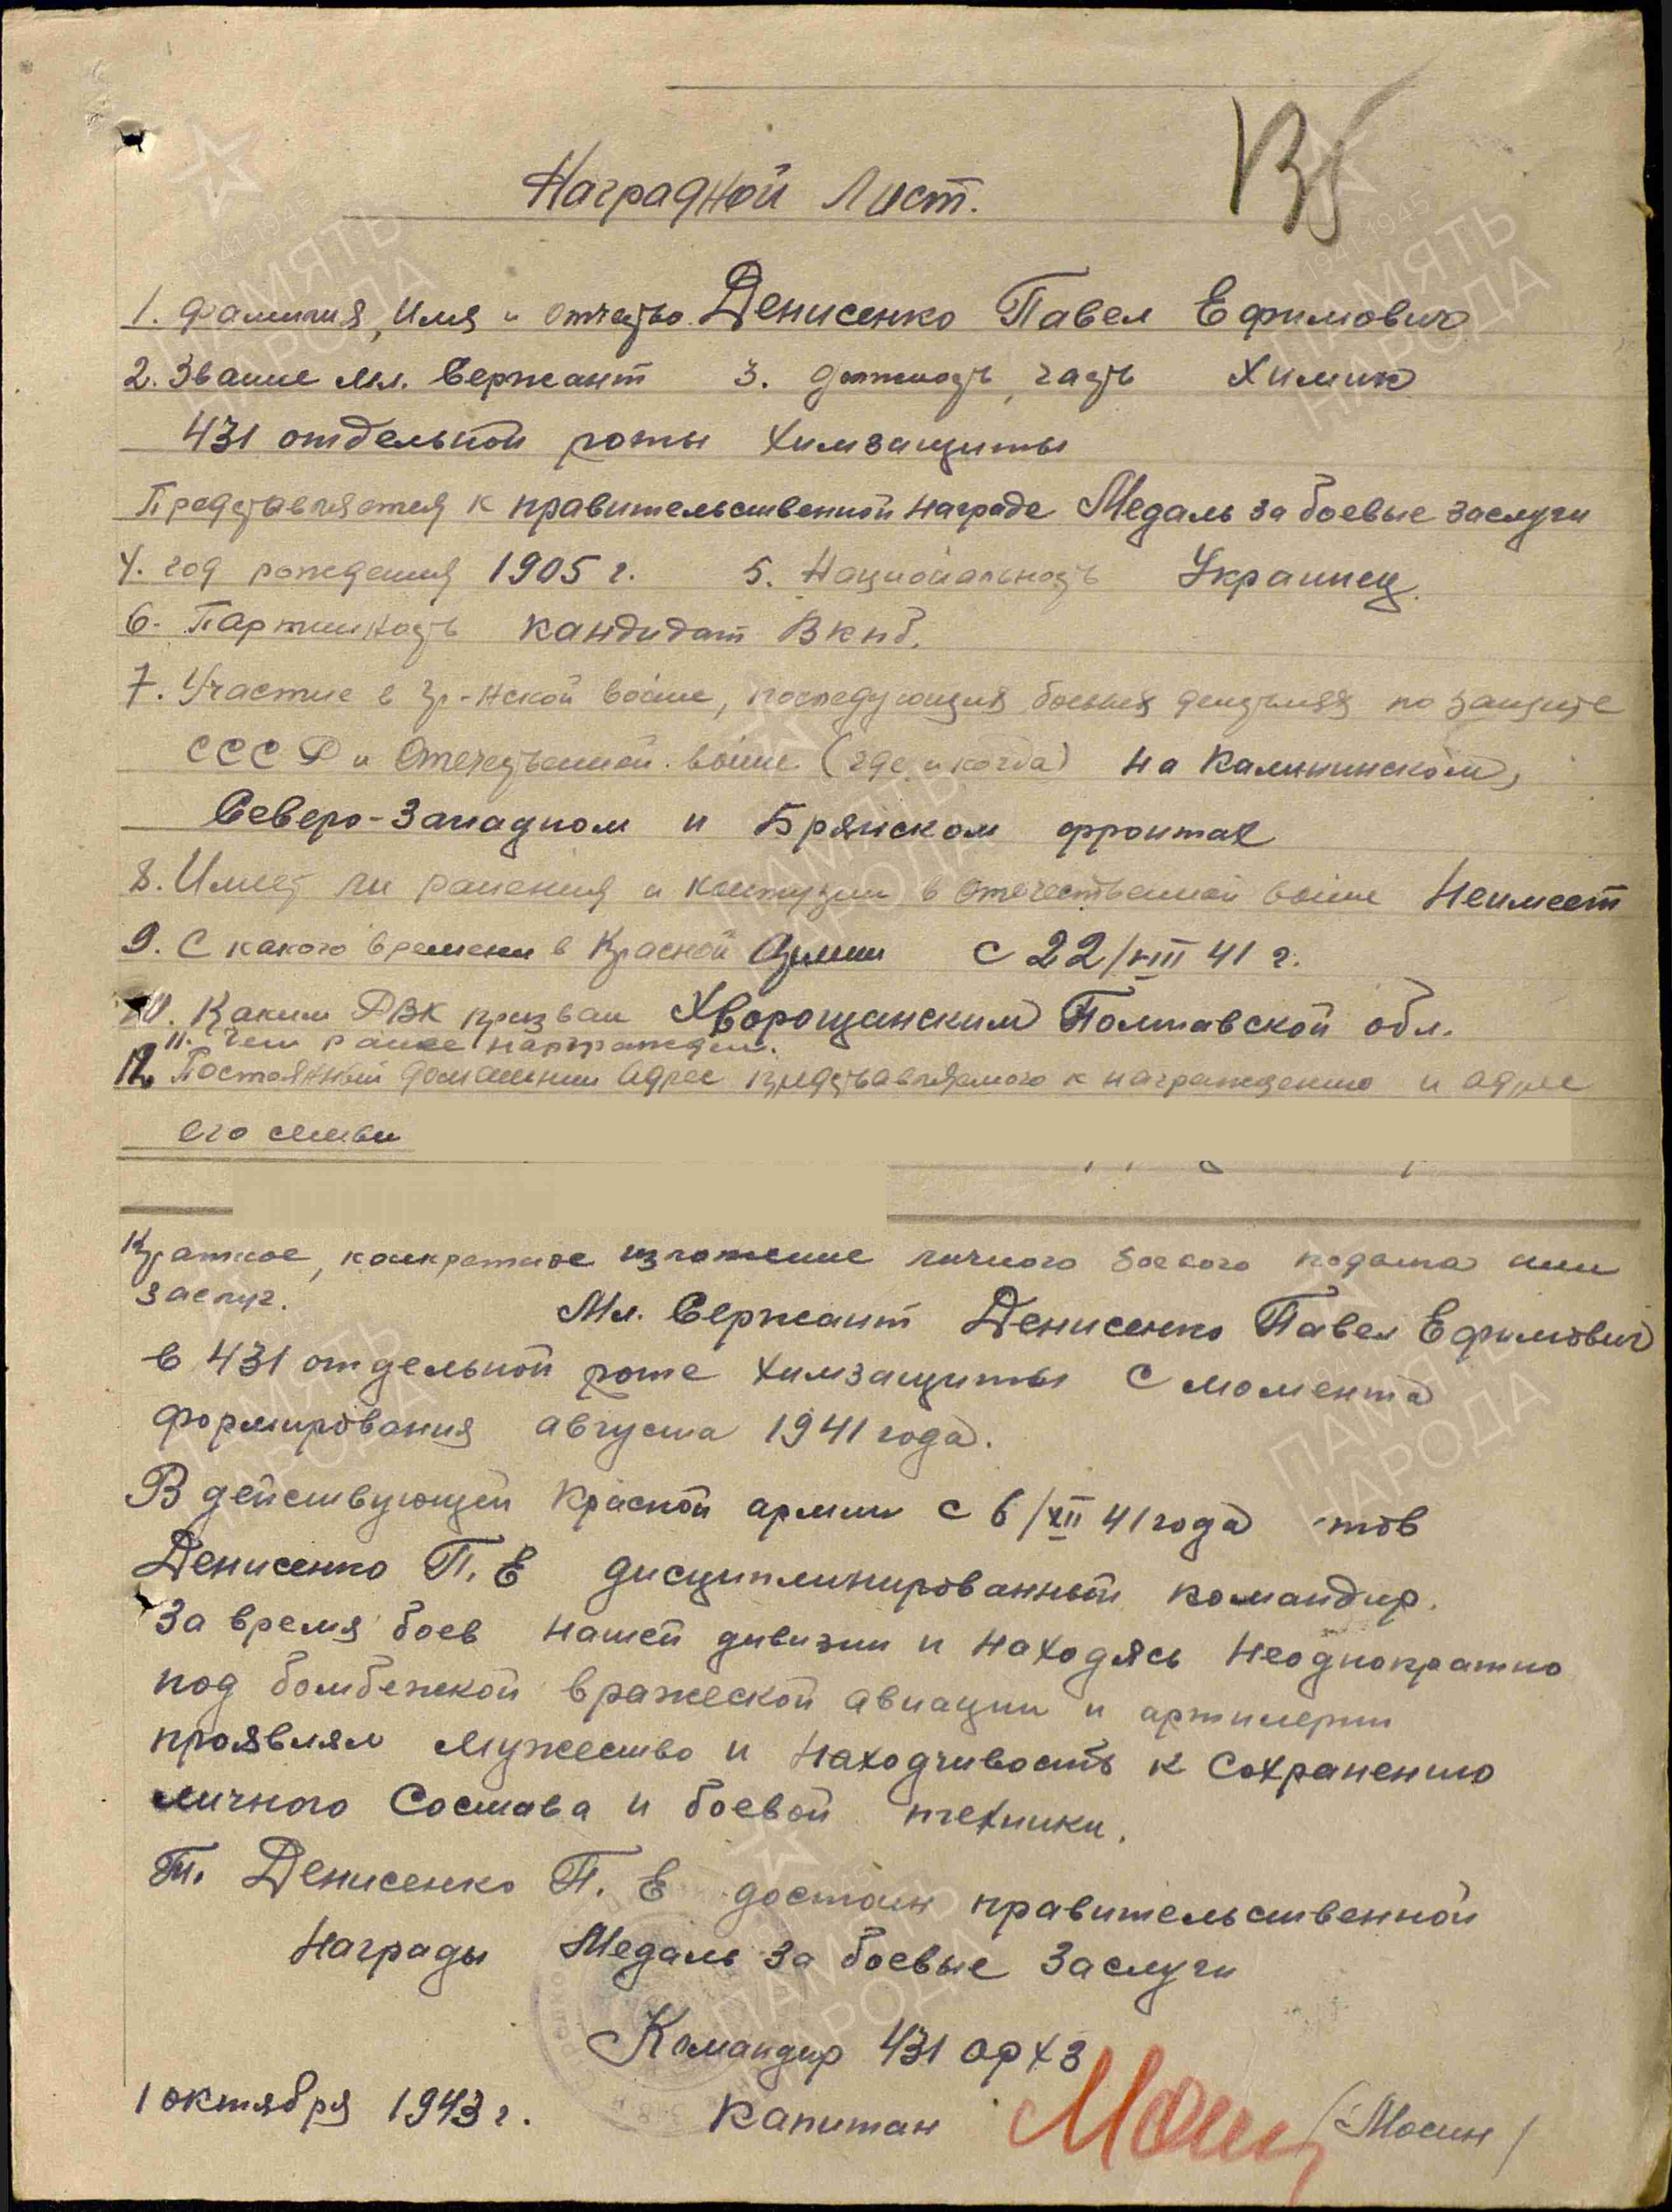 Наградной Лист.
1. Фамилия, Имя и отчество Денисенко Павел Ефимович
2. Звание мл. Сержант 3. должность, часть Химик
431 отдельной роты химзащиты
Представляется к правительственной награде Медаль за боевые заслуги
4. год рождения 1905 г. 5. Национальность Украинец.
6. Партийность кандидат ВКПб.
7. Участие в гр-нской войне, последующих боевых действиях по защите
СССР и Отечественной войне (где и когда) на Калининском,
Северо-Западном и Брянском фронтах
8. Имеет ли ранения и контузии в отечественной войне Неимеет
9. С какого времени в Красной Армии с 22/VIII 41 г.
10. Каким РВК призван Хворощанским Полтавской обл.
11. Чем ранее награжден.
12. Постоянный домашний адрес представляемого к награждению и адрес
его семьи
Краткое, конкретное изложение личного боевого подвига или
заслуг.
Мл. Сержант Денисенко Павел Ефимович
в 431 отдельной роте химзащиты с момента
формирования августа 1941 года.
В действующей Красной армии с 6/XII 41 года тов
Денисенко П. Е дисциплинированный командир.
За время боев нашей дивизии и находясь неоднократно
под бомбежкой вражеской авиации и артилерии
проявлял мужество и находчивость к сохранению
личного состава и боевой техники.
Т. Денисенко П. Е достоин правительственной
Награды Медаль за боевые заслуги
Командир 431 орхз
1 октября 1943 г. капитан /Мосин/
ПАМЯТЬ
НАРОДА
1941-1945